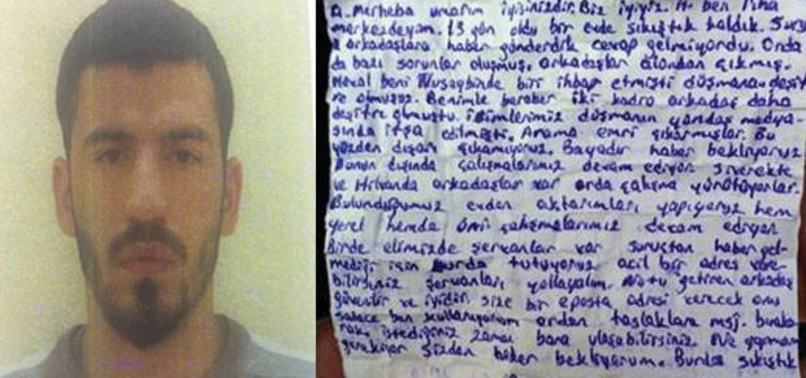 a. Merheba umarım iyisinizdir. Biz iyiyiz. H. ben
merkezdeyam. 15 gün oldu bir evde sıkıştık kaldık.
arkadaşlara haber gönderdik cevap gelmiyordu. Orda
da bazı sorunlar oluşmuş. arkadaşlar alandan çıkmış.
Heval beni Nusaybinde biri ihbar etmişti düşmana
re olmuşuz. Benimle beraber iki kadro arkadaş daha
deşifre olmuştu. isimlerimiz düşmanın yandaş medya
sında ifşa edilmişti. Arama emri çıkarmışlar. Bu
yüzden dışarı çıkamıyoruz. Bayadır haber bekliyoruz
Bunun dışında çalışmalarımız devam ediyor. Siverekte
ve Hilvanda arkadaşlar var orda çalışma yürütüyorlar.
Bulunduğumuz evden aktarımları yapıyoruz hem
yerel hemde çalışmalarımız devam ediyor
Birde elimizde şervanlar var suruçtan haber gel
mediği için burda tutuyoruz acil bir adres vere
bilirsiniz şervanları yollayalım. Notu getiren arkadaş
güvenilir ve iyidir. size bir eposta adresi verecek onu
sadece ben kullanıyorum ordan taslaklara msj. bıraka
rak istediğiniz zaman bana ulaşabilirsiniz. Ne yapmam
gerekiyor sizden haber bekliyorum. Burda sıkıştık